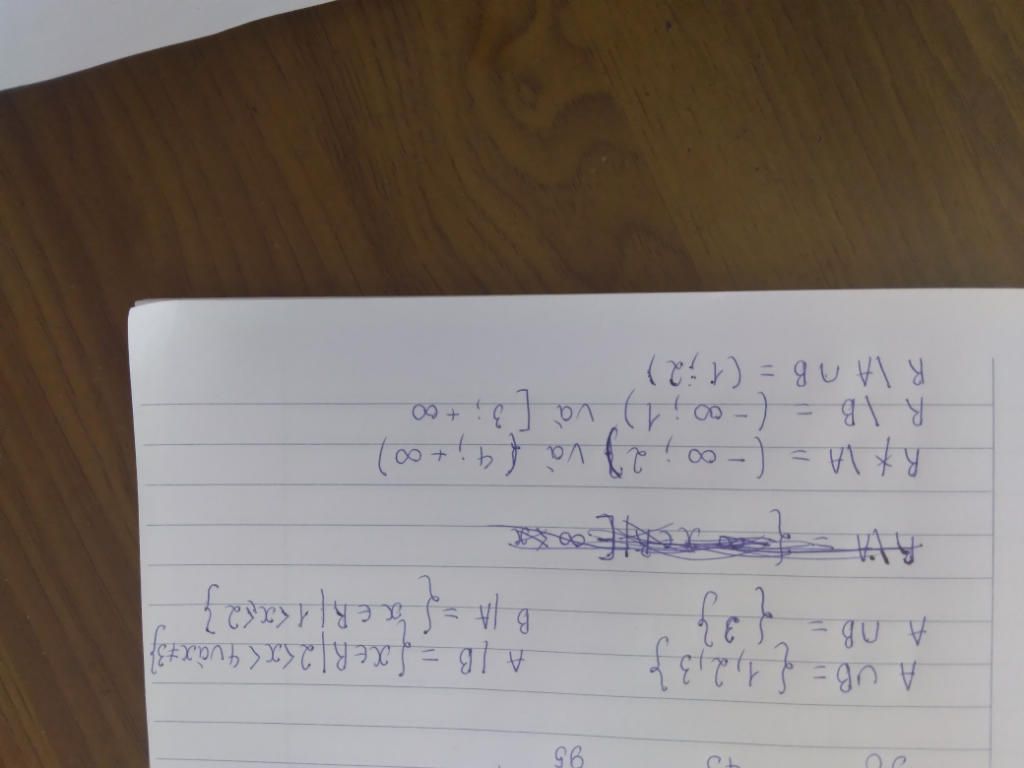 A ∪ B = {1,2,3} A | B = {x∈R | 2<x<4 và x≠3}
A ∩ B = {3} B | A = {x∈R | 1<x≤2}
R \ A = (-∞; 2} và {4; +∞)
R \ B = (-∞; 1) và [3; +∞
R \ A ∩ B = (1; 2)